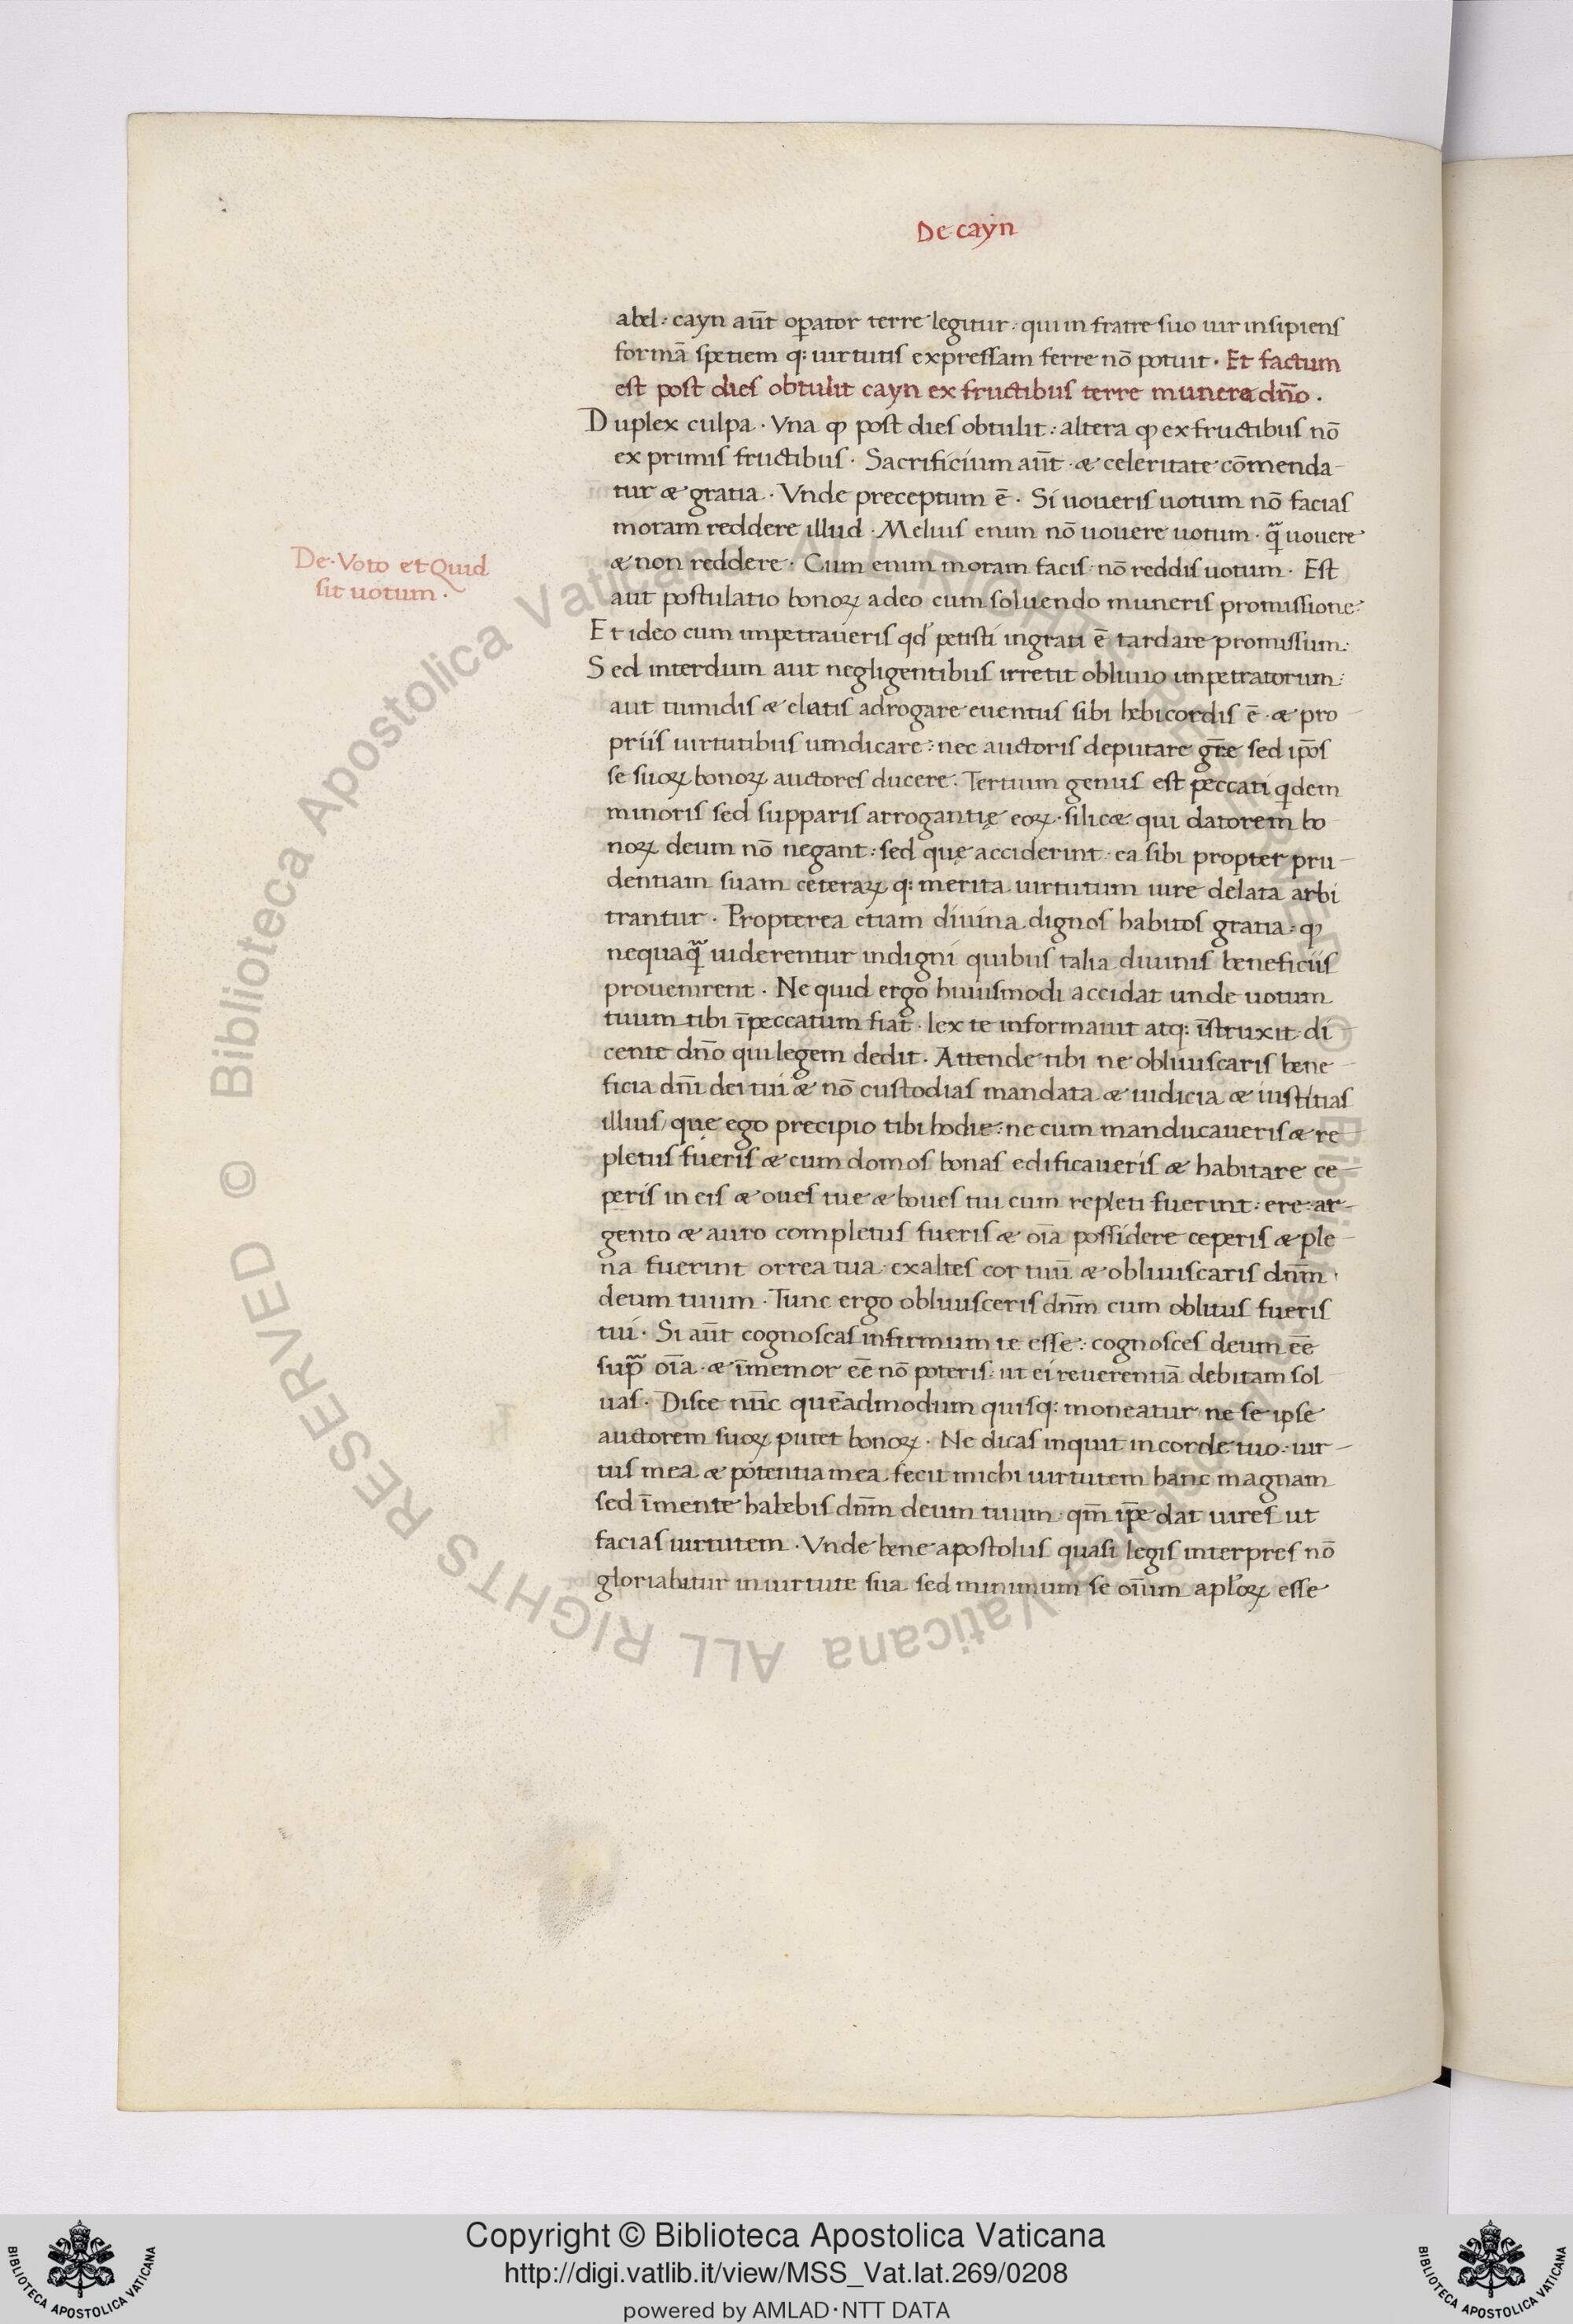 De cayn
abel : cayn aūt oꝑator terre legitur : qui in fratre suo uir insipiens
formā spetiem q: uirtutis expressam ferre nō potuit . Et factum
est post dies obtulit cayn ex fructibus terre munera dn̄o .
Duplex culpa . Vna ꝙ post dies obtulit : altera ꝙ ex fructibus nō
ex primis fructibus . Sacrificium aūt . & celeritate cōmenda-
tur & gratia . Vnde preceptum ē . Si uoueris uotum nō facias
moram reddere illud . Melius enim nō uouere uotum . q̄ uouere
& non reddere . Cum enim moram facis . nō reddis uotum . Est
De . Voto et Quid
sit uotum .
aut postulatio bonoꝝ a deo cum soluendo muneris promissione .
Et ideo cum impetraueris qd' petisti ingrati ē tardare promissum :
Sed interdum aut negligentibus irretit obliuio impetratorum :
aut tumidis & elatis adrogare euentus sibi hebi cordis ē . & pro
priis uirtutibus uindicare : nec auctoris deputare gr̄e sed ip̄os
se suoꝝ bonoꝝ auctores ducere . Tertium genus est peccati qdem
minoris sed supparis arrogantię eoꝝ . silicæ qui datorem bo
noꝝ deum nō negant : sed quę acciderint : ea sibi propter pru-
dentiam suam ceteraꝝ q: merita uirtutum iure delata arbi
trantur . Propterea etiam diuina dignos habitos gratia : ꝙ
nequaq̄ uiderentur indigni quibus talia diuinis beneficiis
prouenirent . Ne quid ergo huiusmodi accidat unde uotum
tuum tibi ī peccatum fiat . lex te informauit atq: īstruxit di
cente dn̄o qui legem dedit . Attende tibi ne obliuiscaris bene-
ficia dn̄i dei tui & nō custodias mandata & iudicia & iustitias
illius, que ego precipio tibi hodie : ne cum manducaueris & re
pletus fueris & cum domos bonas edificaueris & habitare ce-
peris in eis & oues tue & boues tui cum repleti fuerint : ere : ar-
gento & auro completus fueris & oīa possidere ceperis & ple-
na fuerint orrea tua . exaltes cor tuū & obliuiscaris dn̄m .
deum tuum . Tunc ergo obliuisceris dn̄m cum oblitus fueris
tui . Si aūt cognoscas infirmum te esse : cognosces deum eē
sup̄ oīa . & īmemor eē nō poteris : ut ei reuerentiā debitam sol
uas . Disce nūc quēadmodum quisq: moneatur ne se ipse
auctorem suoꝝ putet bonoꝝ . Ne dicas inquit in corde tuo : uir-
tus mea & potentia mea fecit michi uirtutem hanc magnam
sed ī mente habebis dn̄m deum tuum . qm̄ ip̄e dat uires ut
facias uirtutem . Vnde bene apostolus quasi legis interpres nō
gloriabitur in uirtute sua sed minimum se oīum apl'oꝝ esse
Copyright © Biblioteca Apostolica Vaticana
http://digi.vatlib.it/view/MSS_Vat.lat.269/0208
powered by AMLAD·NTT DATA
BIBLIOTECA APOSTOLICA VATICANA
BIBLIOTECA APOSTOLICA VATICANA
© Biblioteca Apostolica Vaticana ALL RIGHTS RESERVED
© Biblioteca Apostolica Vaticana ALL RIGHTS RESERVED